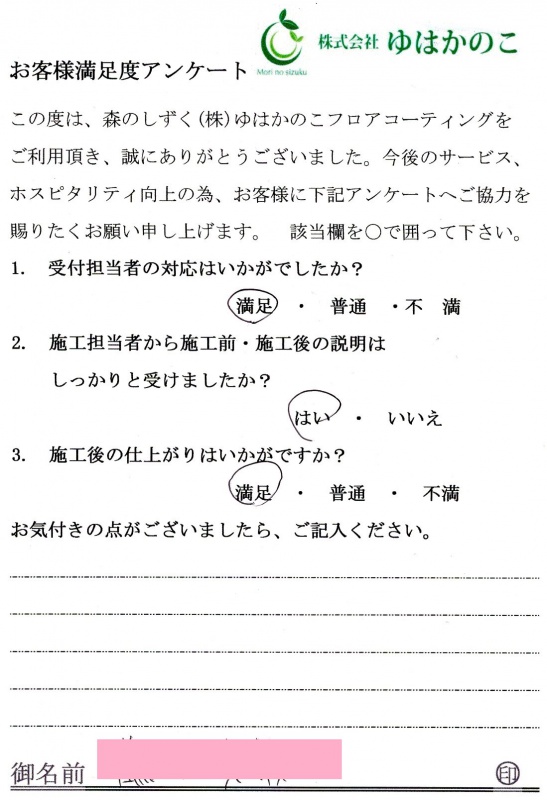 株式会社 ゆはかのこ
Mori no sizuku
お客様満足度アンケート
この度は、森のしずく(株)ゆはかのこフロアコーティングを
ご利用頂き、誠にありがとうございました。今後のサービス、
ホスピタリティ向上の為、お客様に下記アンケートへご協力を
賜りたくお願い申し上げます。　該当欄を○で囲って下さい。
1.　受付担当者の対応はいかがでしたか？
満足　・　普通　・不　満
2.　施工担当者から施工前・施工後の説明は
しっかりと受けましたか？
はい　・　いいえ
3.　施工後の仕上がりはいかがですか？
満足　・　普通　・　不満
お気付きの点がございましたら、ご記入ください。
御名前　印